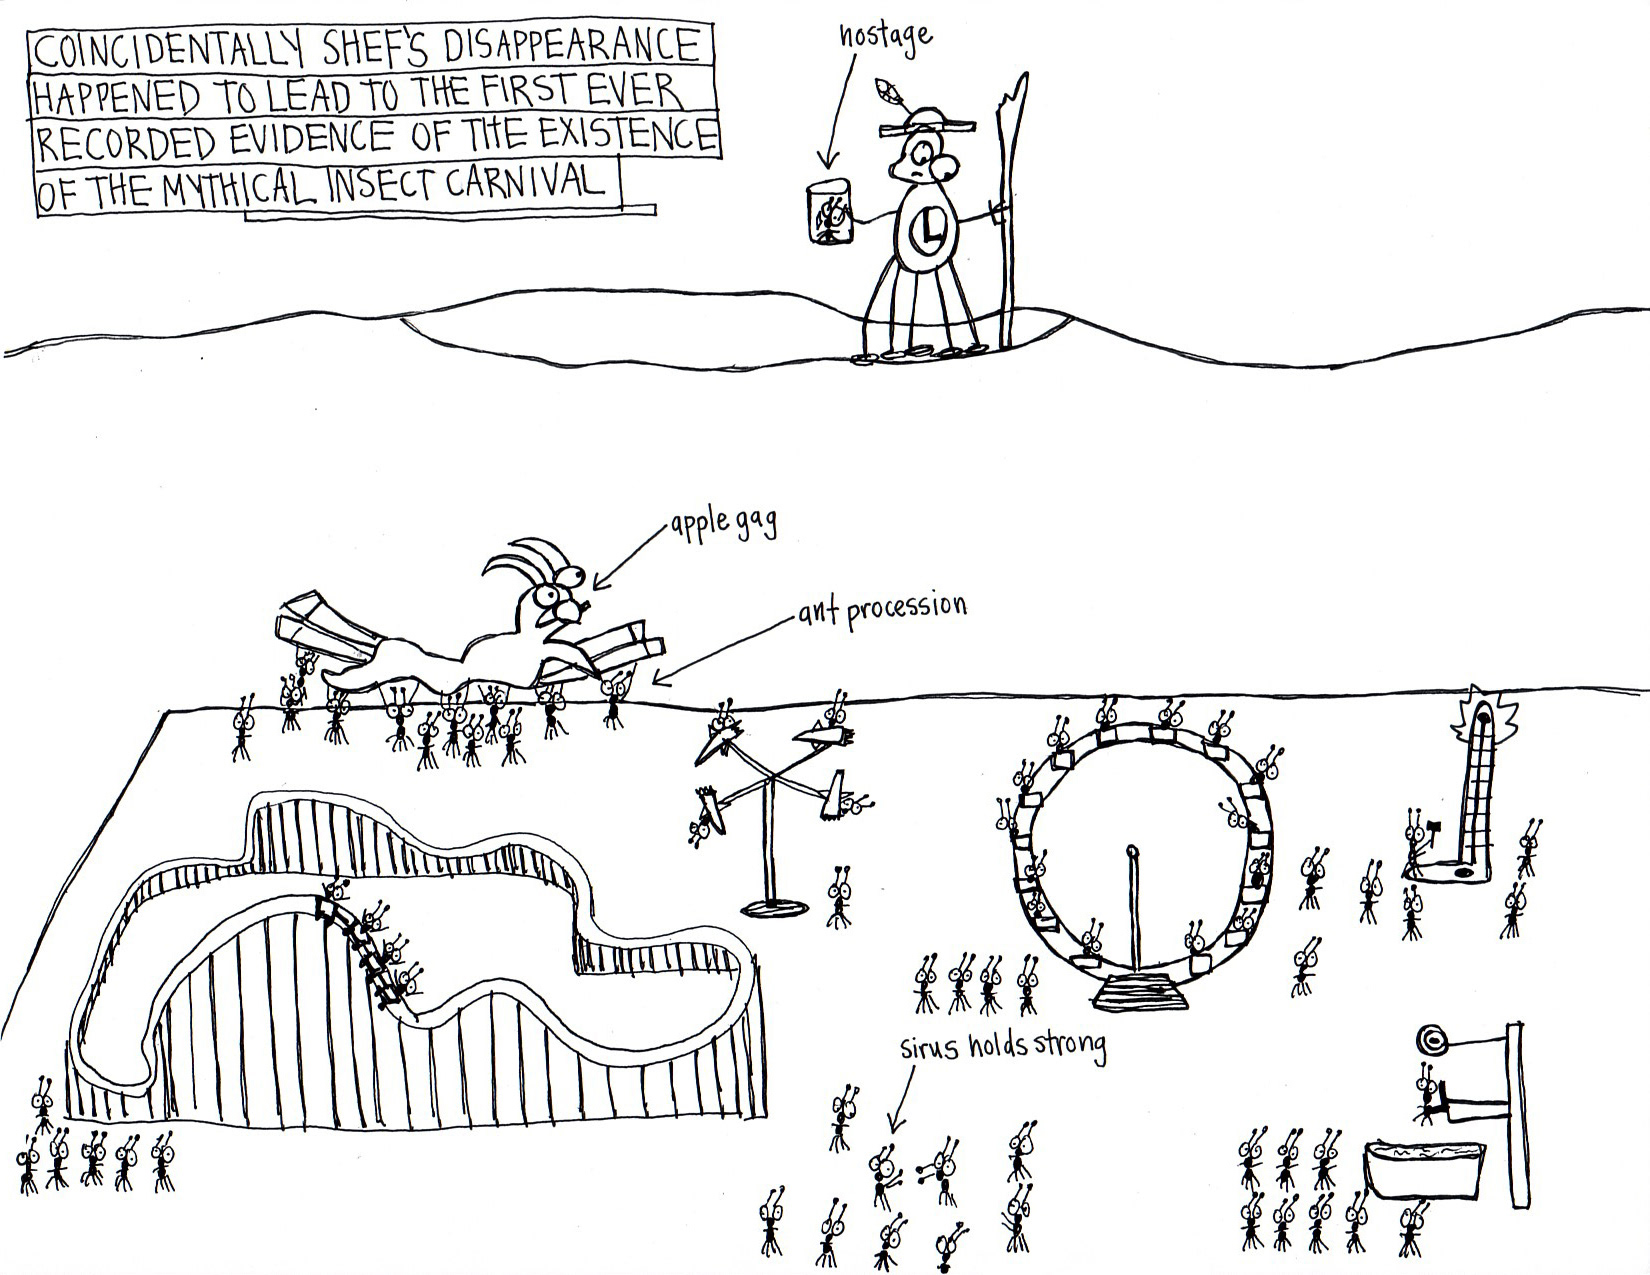 COINCIDENTALLY SHEF'S DISAPPEARANCE
HAPPENED TO LEAD TO THE FIRST EVER
RECORDED EVIDENCE OF THE EXISTENCE
OF THE MYTHICAL INSECT CARNIVAL
hostage
L
apple gag
ant procession
sirus holds strong